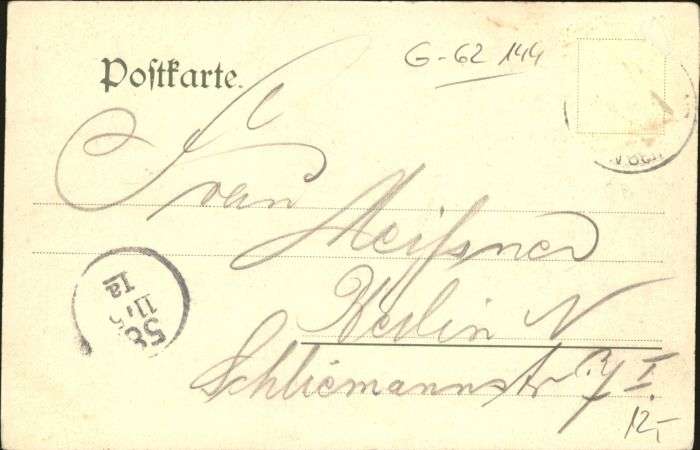 Postkarte.
G-62 144
Frau
Meißner
Berlin N
Schliemannstr I.
12,-
58
11,
Ia